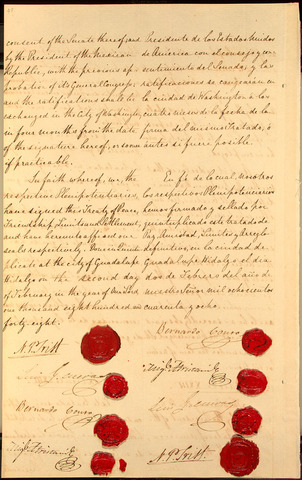 consent of the Senate thereof; and
by the President of the Mexican
Republic, with the previous ap-
probation of its General Congress;
and the ratifications shall be
exchanged in the City of Washington,
in four months from the date
of the signature hereof, or sooner
if practicable.
In faith whereof, we, the
respective Plenipotentiaries,
have signed this Treaty of Peace,
Friendship, Limits and Settlement,
and have hereunto affixed our
seals respectively. Done in Quintu-
plicate at the City of Guadalupe
Hidalgo on the second day
of February in the year of Our Lord
one thousand eight hundred and
forty eight.
N. P. Trist
Luis G. Cuevas
Bernardo Couto
Migl. Atristain
Presidente de los Estados Unidos
de America con el consejo y con-
sentimiento del Senado, y las
ratificaciones se cangearán en
la ciudad de Washington a los
cuatro meses de la fecha de la
firma del mismo Tratado, ó
antes si fuere posible.
En fé de lo cual, nosotros
los respectivos Plenipotenciarios
hemos firmado y sellado por
quintuplicado este tratado de
Paz, Amistad, Límites y Arreglo
definitivo, en la ciudad de
Guadalupe Hidalgo el dia
dos de Febrero del año de
nuestro Señor mil ochocientos
cuarenta y ocho.
Bernardo Couto
Migl. Atristain
Luis G. Cuevas
N. P. Trist